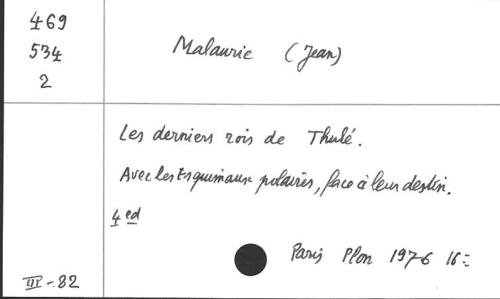 469
534
2
Malaurie (Jean)
Les derniers rois de Thulé.
Avec les Esquimaux polaires, face à leur destin.
4ed
Paris Plon 1976 16=
III-82